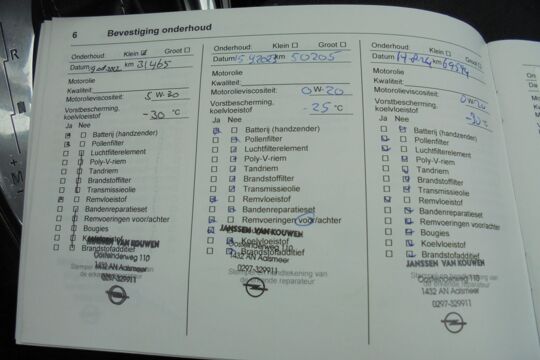 6 Bevestiging onderhoud
Onderhoud: Klein Groot
Datum km 31465
Motorolie
Kwaliteit:
Motorolieviscositeit: 5 W-30
Vorstbescherming,
koelvloeistof -30 °C
Ja Nee
Batterij (handzender)
Pollenfilter
Luchtfilterelement
Poly-V-riem
Tandriem
Brandstoffilter
Transmissieolie
Remvloeistof
Bandenreparatieset
Remvoeringen voor/achter
Bougies
Koelvloeistof
Brandstofadditief
JANSSEN VAN KOUWEN
Oosteinderweg 110
1432 AN Aalsmeer
0297-329911
Onderhoud: Klein Groot
Datum km 50205
Motorolie
Kwaliteit:
Motorolieviscositeit: 0W-20
Vorstbescherming,
koelvloeistof -25 °C
Ja Nee
Batterij (handzender)
Pollenfilter
Luchtfilterelement
Poly-V-riem
Tandriem
Brandstoffilter
Transmissieolie
Remvloeistof
Bandenreparatieset
Remvoeringen voor/achter
JANSSEN VAN KOUWEN
Koelvloeistof
Brandstofadditief
Oosteinderweg 110
1432 AN Aalsmeer
Stempel handtekening van
de erkende reparateur
0297-329911
Onderhoud: Klein Groot
Datum km
Motorolie
Kwaliteit:
Motorolieviscositeit: 0W-20
Vorstbescherming,
koelvloeistof °C
Ja Nee
Batterij (handzender)
Pollenfilter
Luchtfilterelement
Poly-V-riem
Tandriem
Brandstoffilter
Transmissieolie
Remvloeistof
Bandenreparatieset
Remvoeringen voor/achter
Bougies
Koelvloeistof
Brandstofadditief
JANSSEN VAN KOUWEN
Oosteinderweg 110
1432 AN Aalsmeer
0297-329911